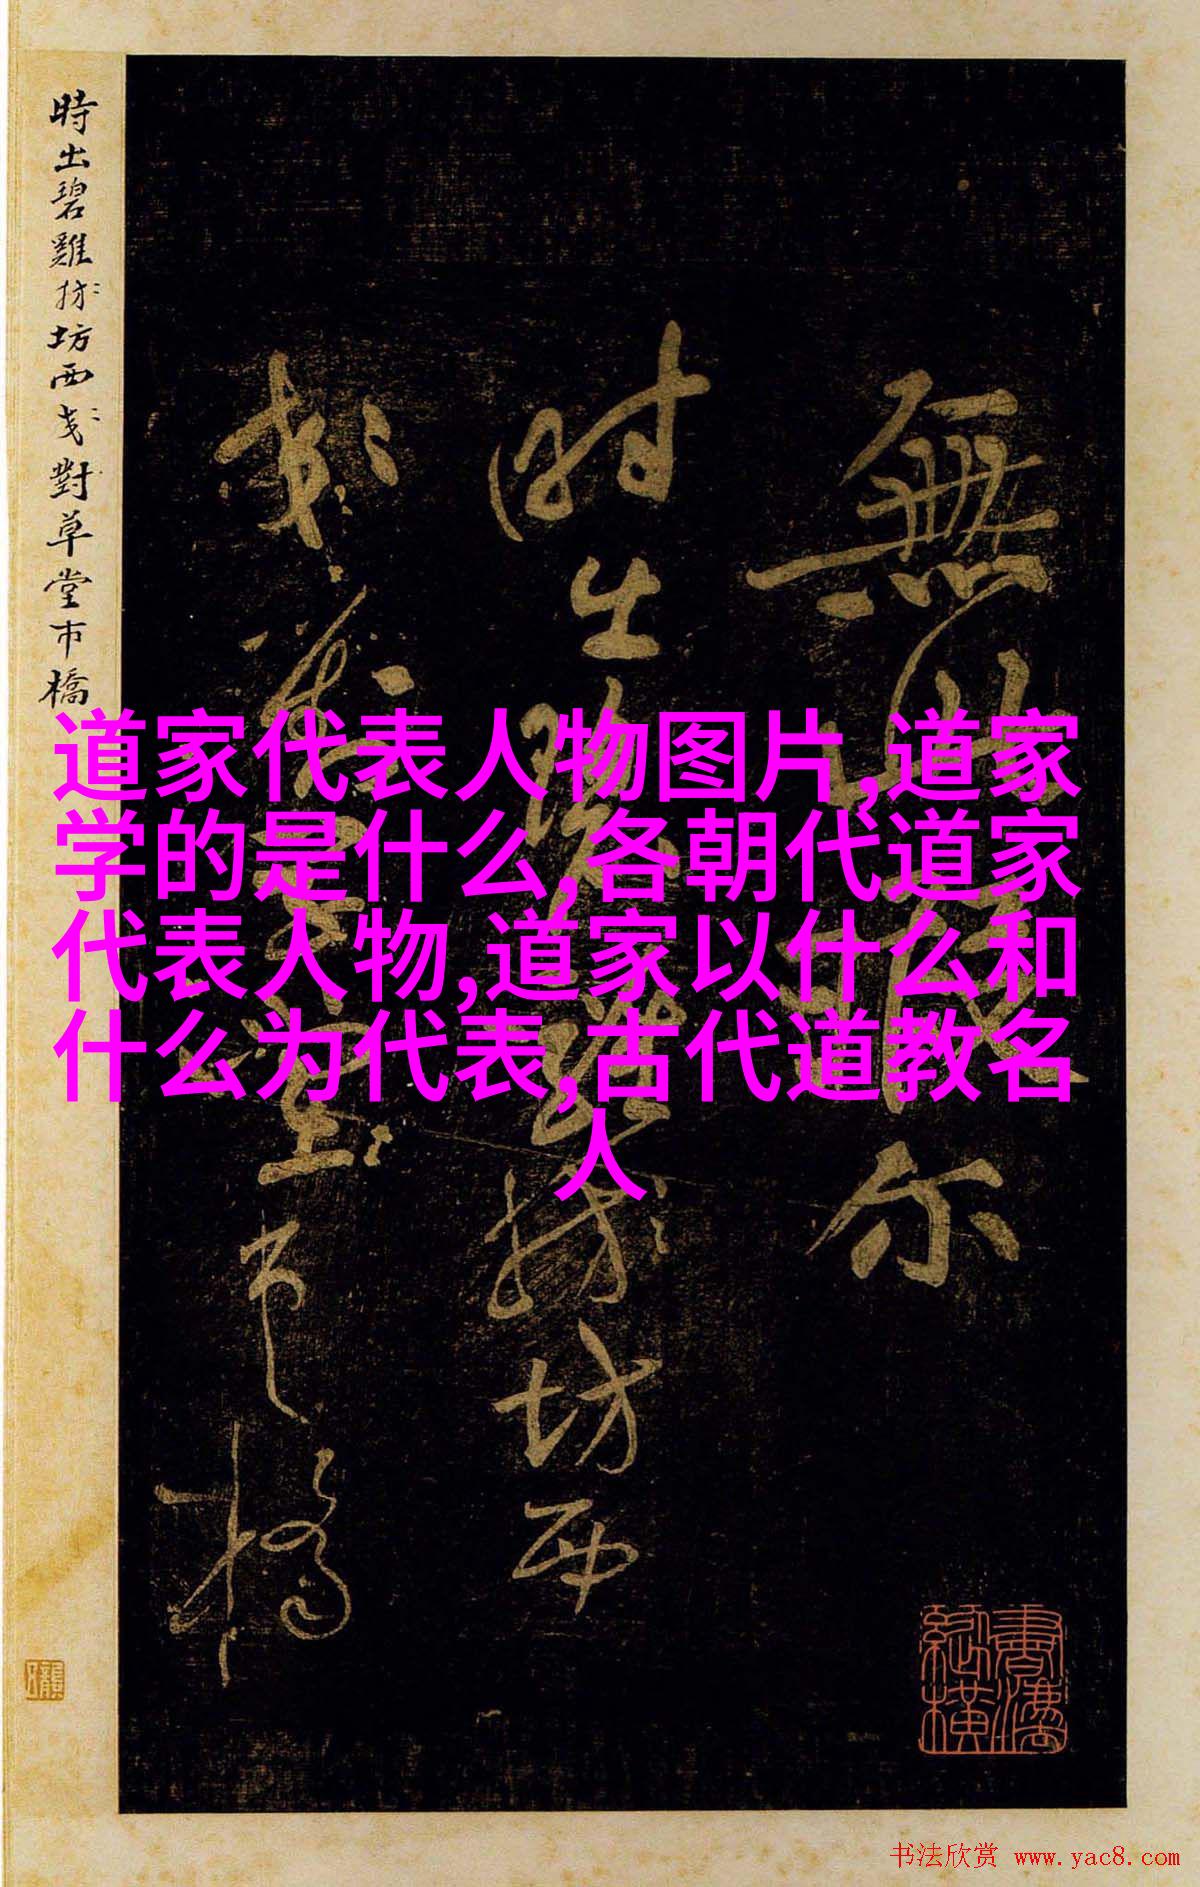 道家代表人物图片,道家
学的是什么,各朝代道家
代表人物,道家以什么和
什么为代表,古代道教名
人
時出碧雞坊西對草堂市橋
無尔
时出坊西
堂市橋
书法欣赏 www.yac8.com